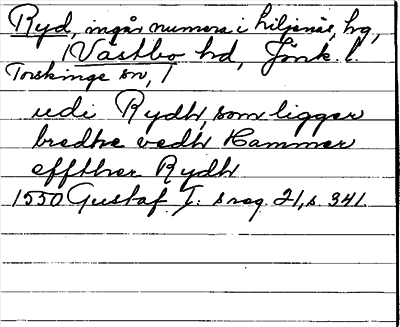 Ryd, ingår numera i Liljenäs, hg,
Västbo hd, Jönk. l.
Torskinge sn,
udi Rydh, som ligger
bredhe vedh Hammer
effther Rydh
1550 Gustaf I:s reg 21, s. 341